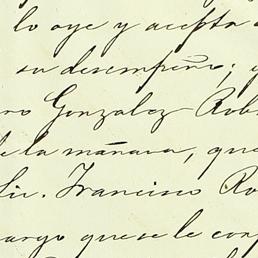 lo oye y acepta
su desempeño; y
ro Gonzalez Rob
de la mañana, que
Lic. Francisco Ro
cargo que se le con